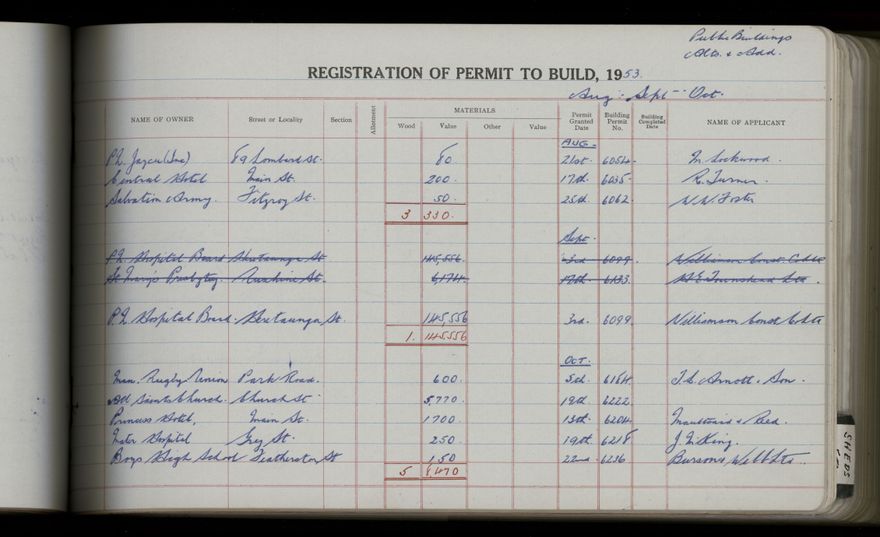 Public Buildings
Alts. & Add.
REGISTRATION OF PERMIT TO BUILD, 1953.
Aug - Sept - Oct.
NAME OF OWNER Street or Locality Section Allotment MATERIALS Wood Value Other Value Permit Granted Date Building Permit No. Building Completed Date NAME OF APPLICANT
AUG.
P.N. Jaycee (Inc) Lombard St. 80 21st. 6054. Lockwood.
Central Hotel Main St. 200. 17th. 6035. R. Turner.
Salvation Army. Fitzroy St. 50. 25th. 6062. Foster
3 330.
Sept.
P.N. Hospital Board Heretaunga St 145,556. 3rd 6099. Williamson Const Co Ltd
St Mary's Presbytery Ruahine St. 6,174. 17th 6133 Townshend Ltd.
P.N. Hospital Board. Heretaunga St. 145,556 3rd. 6099. Williamson Const Co Ltd
1. 145556
OCT.
Man. Rugby Union Park Road. 600. 5th. 6164. J.C. Arnott & Son.
All Saints Church. Church St 5,770. 19th 6222.
Princess Hotel, Main St. 1700. 13th. 6204. & Reed.
Mater Hospital Grey St. 250 19th 6218. J. N. King.
Boys High School Featherston St 150 22nd 6236 Webb Ltd.
5 8,470
SHEDS